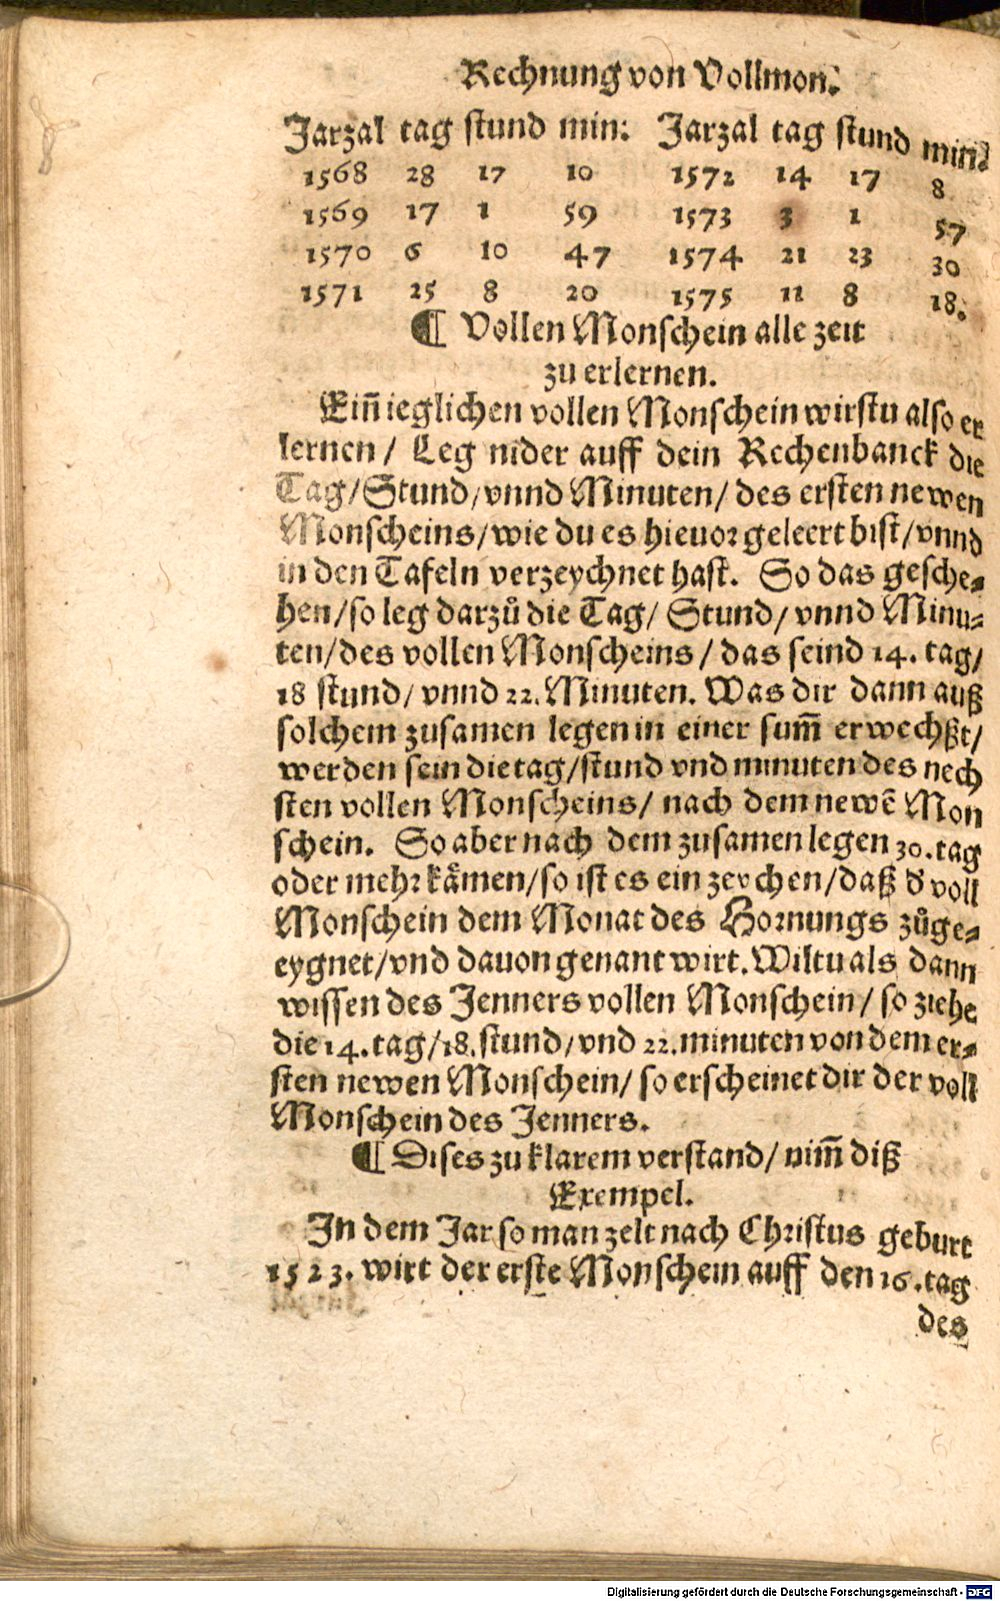 Rechnung von Vollmon.
Jarzal tag stund min: Jarzal tag stund min:
1568 28 17 10 1572 14 17 8
1569 17 1 59 1573 3 1 57
1570 6 10 47 1574 21 23 30
1571 25 8 20 1575 11 8 18.
¶ Vollen Monschein alle zeit
zu erlernen.
Eiñ ieglichen vollen Monschein wirstu also er
lernen / Leg nider auff dein Rechenbanck die
Tag/Stund/vnnd Minuten/ des ersten newen
Monscheins/wie du es hieuor geleert bist/vnnd
in den Tafeln verzeychnet hast. So das gesche-
hen/so leg darzů die Tag/ Stund/ vnnd Minu-
ten/des vollen Monscheins / das seind 14. tag/
18 stund/ vnnd 22. Minuten. Was dir dann auß
solchem zusamen legen in einer sum̃ erwechßt/
werden sein die tag/stund vnd minuten des nech
sten vollen Monscheins/ nach dem newẽ Mon
schein. So aber nach dem zusamen legen 30. tag
oder mehr kåmen/so ist es ein zeychen/daß d' voll
Monschein dem Monat des Hornungs zůge-
eygnet/vnd dauon genant wirt. Wiltu als dann
wissen des Jenners vollen Monschein/ so ziehe
die 14. tag/18. stund/vnd 22. minuten von dem er-
sten newen Monschein/ so erscheinet dir der voll
Monschein des Jenners.
¶ Dises zu klarem verstand/ nim̃ diß
Exempel.
In dem Jar so man zelt nach Christus geburt
1523. wirt der erste Monschein auff den 16. tag
des
Digitalisierung gefördert durch die Deutsche Forschungsgemeinschaft - DFG